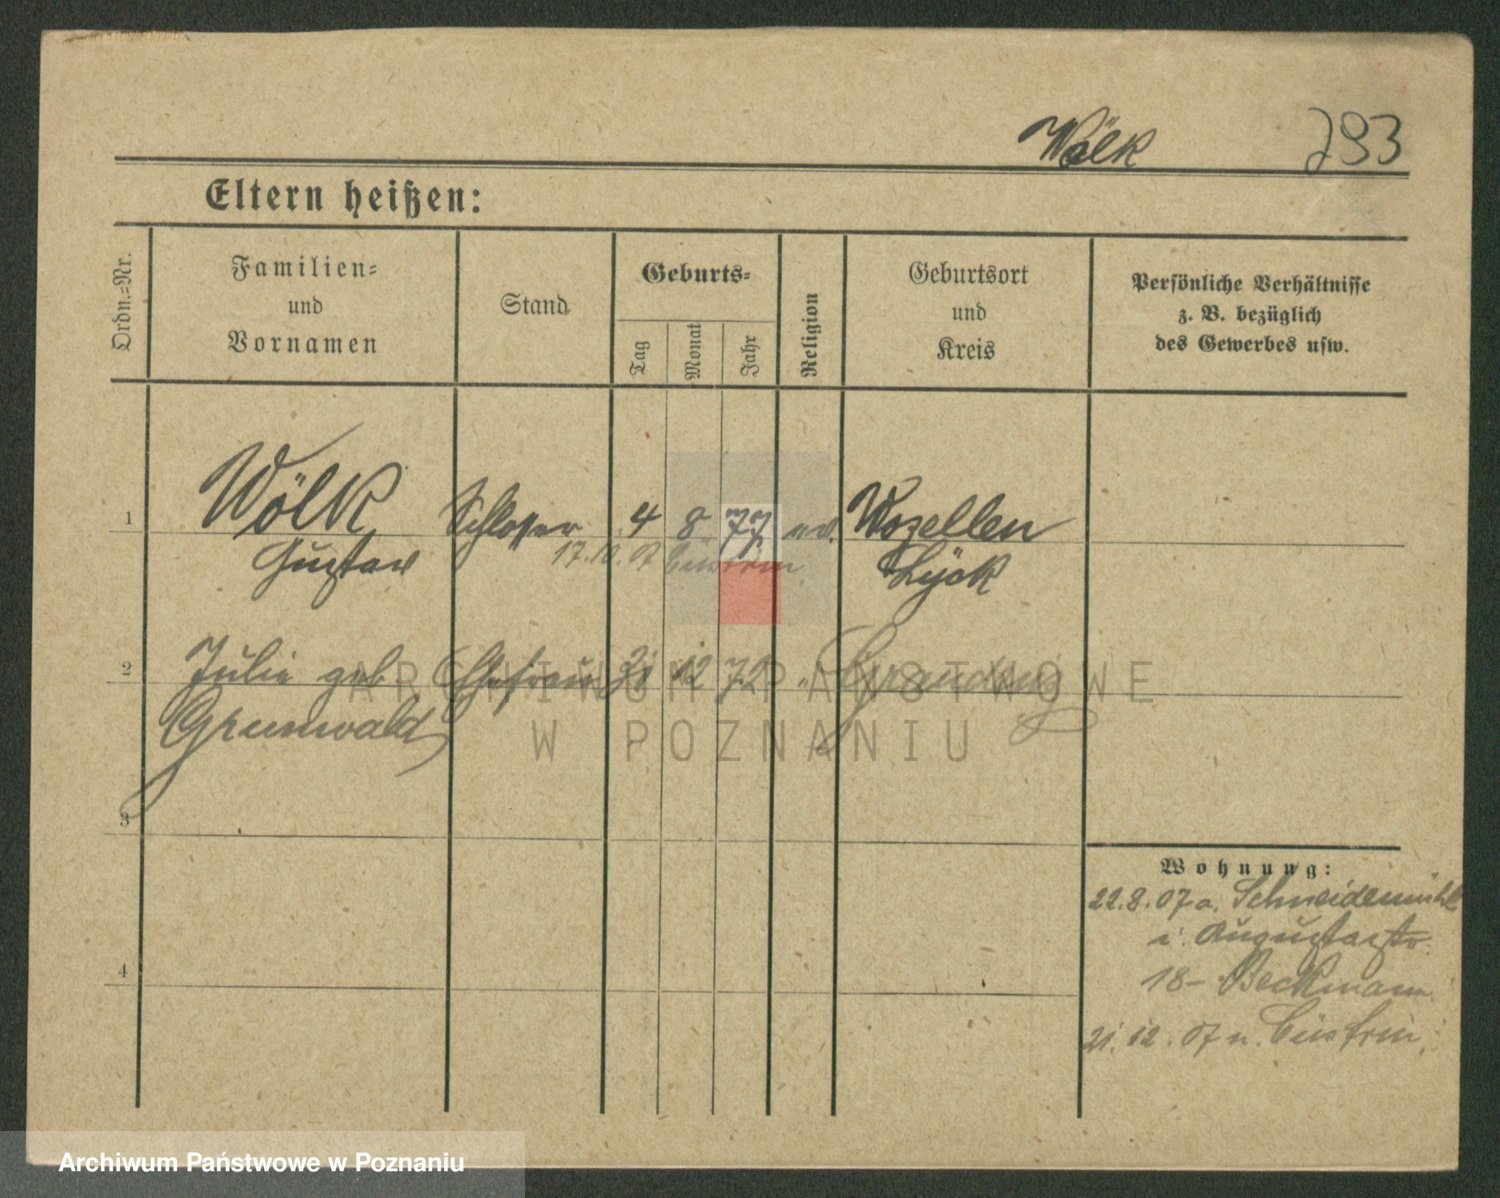 Wölk 293
Eltern heißen:
Ordn.=Nr.
Familien=
und
Vornamen
Stand
Geburts=
Tag
Monat
Jahr
Religion
Geburtsort
und
Kreis
Persönliche Verhältnisse
z. B. bezüglich
des Gewerbes usw.
1 Wölk Schlosser 4 8 77 ev. Wosellen
17.10.07 Cüstrin
Gustav Lyck
2 Julie geb. Ehefrau 21 12 72 " Graudenz
Grunwald
3
4
Wohnung:
22.8.07 a. Schneidemühl
i. Augustastr.
18– Beckmann
21.12.07 n. Cüstrin.
ARCHIWUM PAŃSTWOWE
W POZNANIU
Archiwum Państwowe w Poznaniu